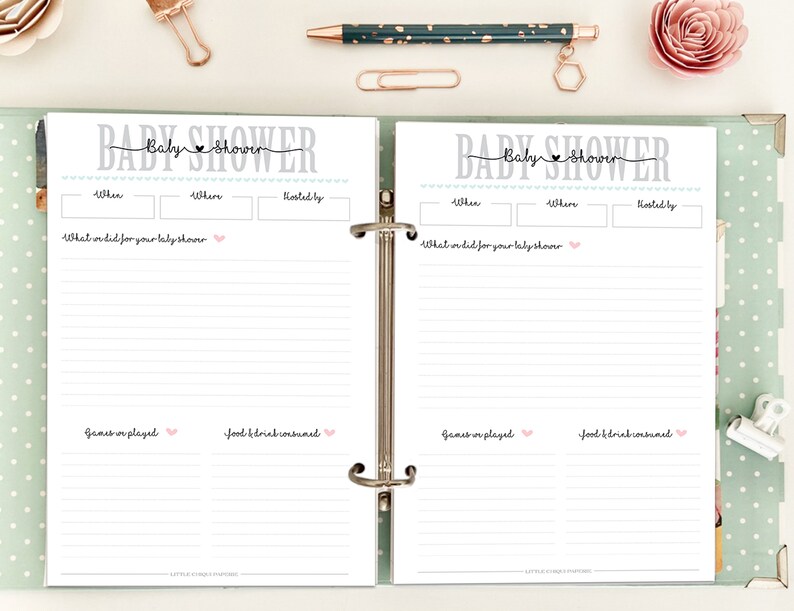 BABY SHOWER
Baby Shower
When Where Hosted by
What we did for your baby shower
Games we played food & drink consumed
BABY SHOWER
Baby Shower
When Where Hosted by
What we did for your baby shower
Games we played food & drink consumed